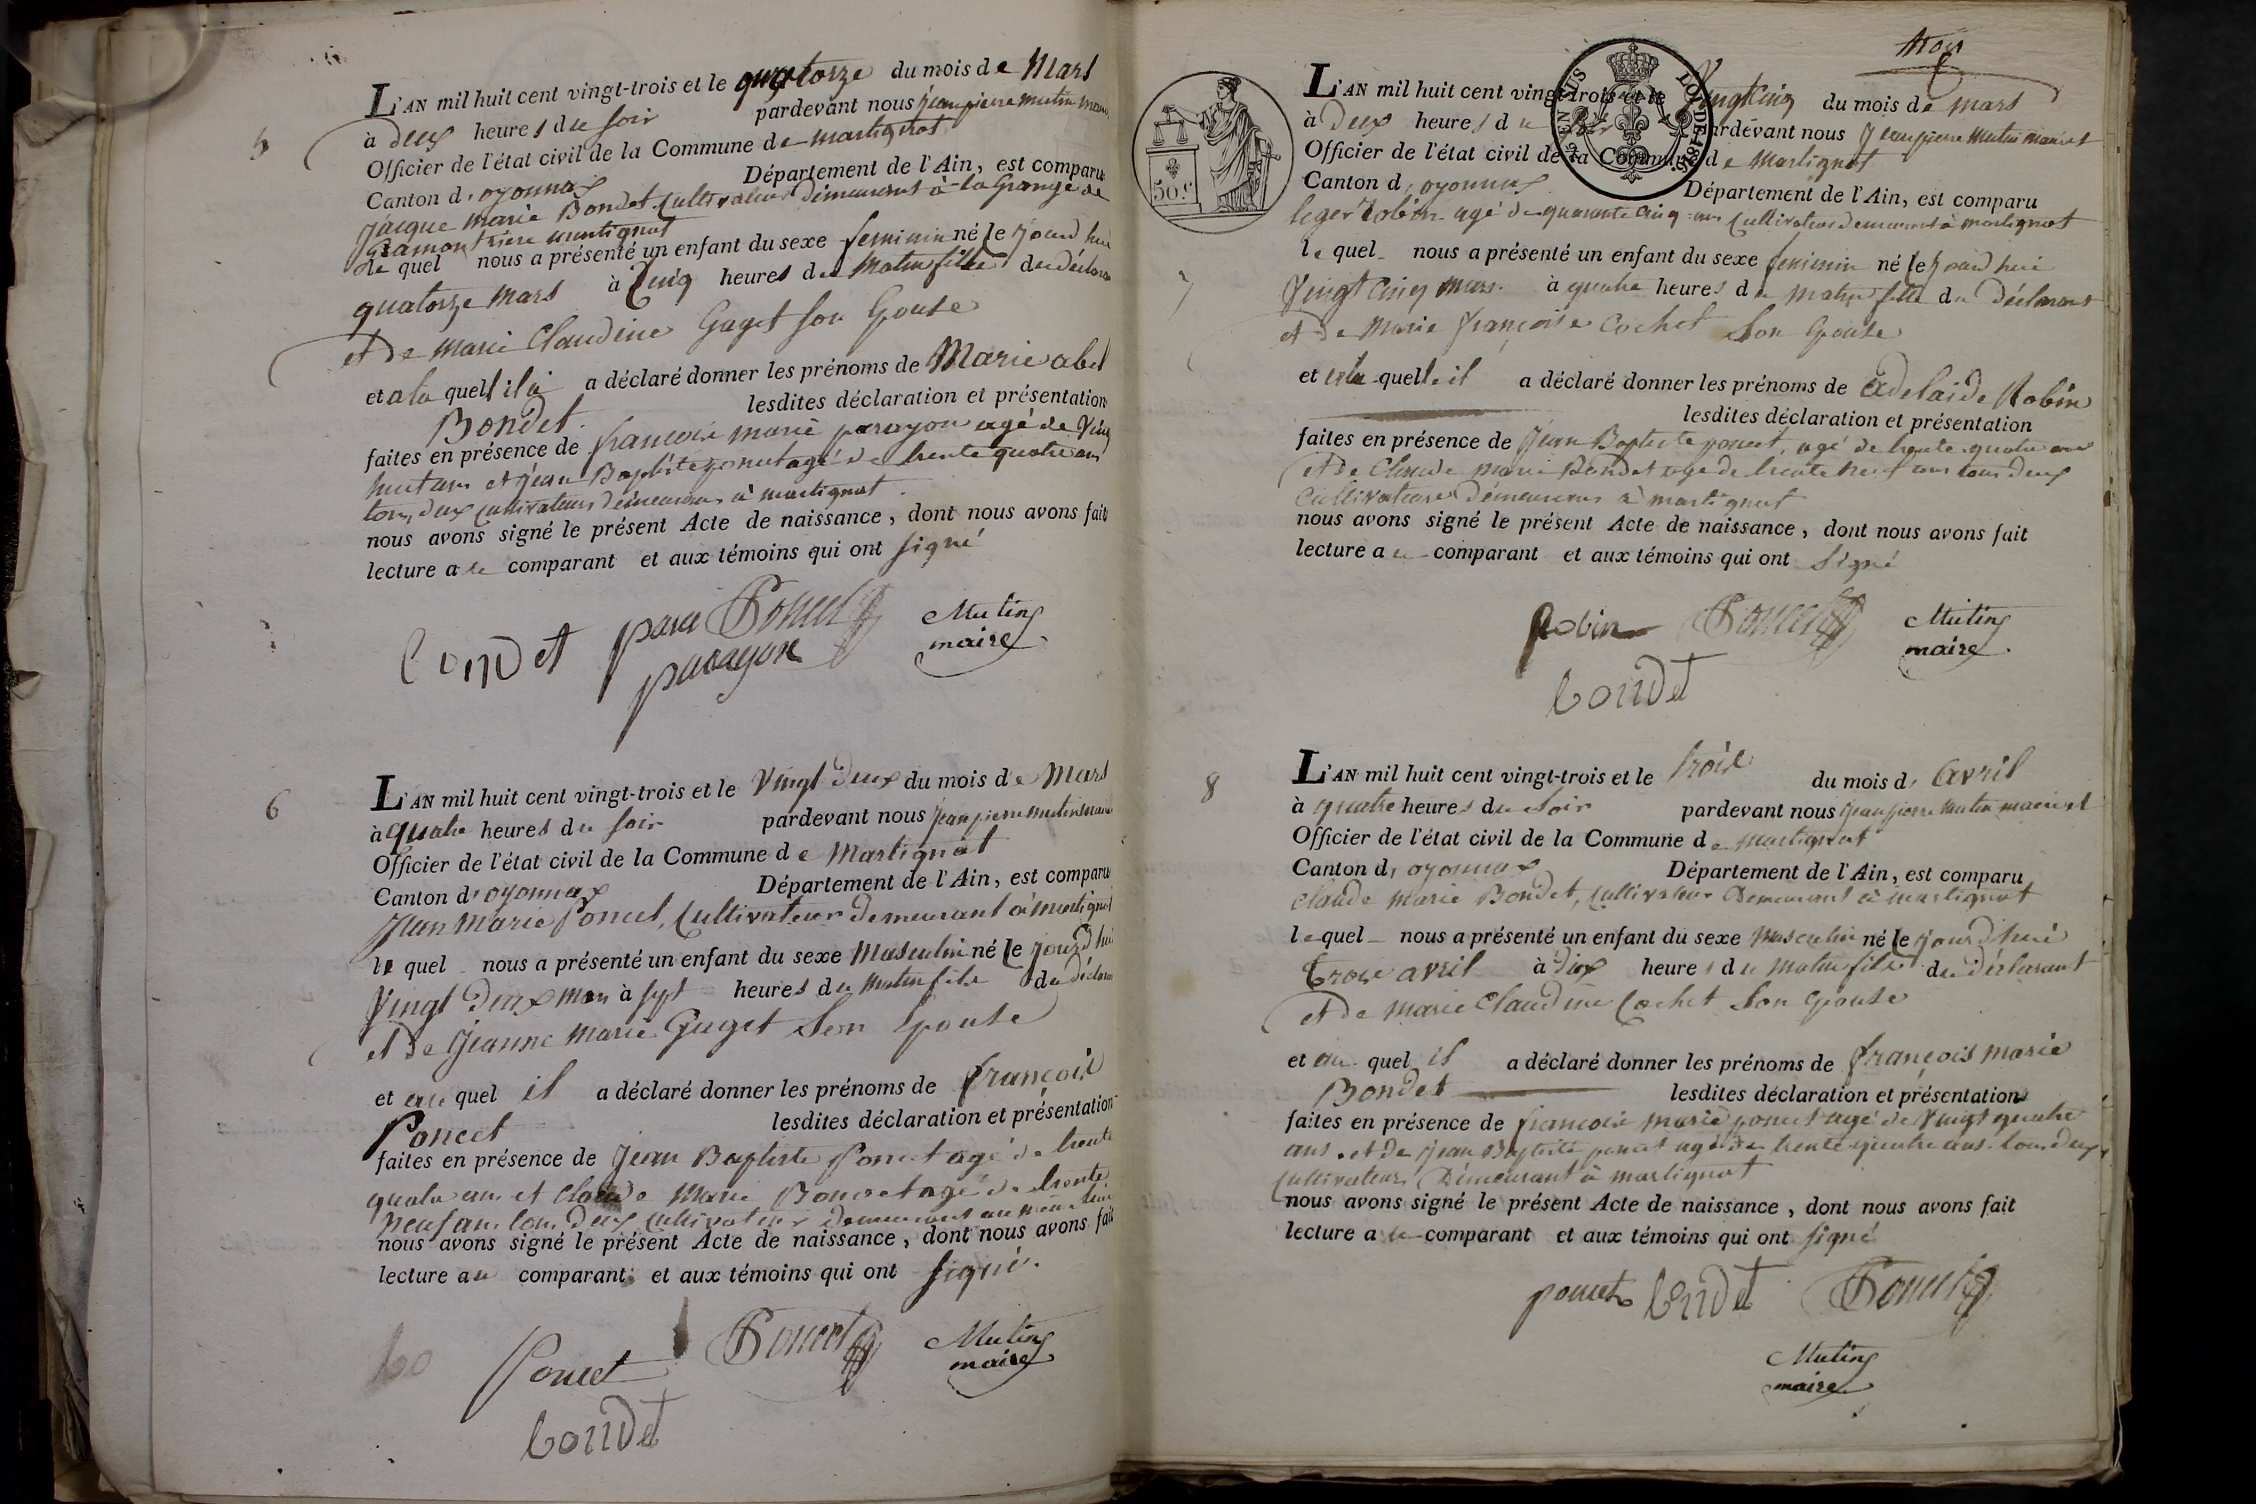 5
L'AN mil huit cent vingt-trois et le quatorze du mois de Mars
à deux heures du soir pardevant nous jean pierre mutin maire
Officier de l'état civil de la Commune de martignat
Canton d'oyonnax Département de l'Ain, est comparu
jacque marie Bondet Cultivateur démeurant à la Grange de
martignat
le quel nous a présenté un enfant du sexe feminin né le jourd hui
quatorze mars à Cinq heures du matin fille du déclarant
et de marie Claudine Guget son Epouse
et a la quelle il a déclaré donner les prénoms de Marie abel
Bondet lesdites déclaration et présentation
faites en présence de francois marie paragon agé de Vingt
huit ans et jean Baptiste poncet agé de trente quatre ans
tous deux cultivateurs démeurans à martignat
nous avons signé le présent Acte de naissance, dont nous avons fait
lecture au comparant et aux témoins qui ont signé
bondet para Poncet Mutin
paragon maire
6
L'AN mil huit cent vingt-trois et le Vingt deux du mois de Mars
à quatre heures du soir pardevant nous jean pierre mutin maire
Officier de l'état civil de la Commune de Martignat
Canton d'oyonnax Département de l'Ain, est comparu
Jean Marie Poncet, Cultivateur demeurant à martignat
le quel nous a présenté un enfant du sexe Masculin né le jourd hui
Vingt deux mars à sept heures du matin fils du déclarant
et de Jeanne Marie Guget son Epouse
et au quel il a déclaré donner les prénoms de françois
Poncet lesdites déclaration et présentation
faites en présence de Jean Baptiste Poncet agé de trente
quatre ans et Claude Marie Bondet agé de trente
neuf ans tous deux cultivateurs demeurant au même lieu
nous avons signé le présent Acte de naissance, dont nous avons fait
lecture au comparant et aux témoins qui ont signé.
bo Poncet Poncet Mutin
maire
bondet
trois
L'AN mil huit cent vingt-trois et le Vingt Cinq du mois de mars
à deux heures du soir pardevant nous Jean pierre Mutin maire et
Officier de l'état civil de la Commune de Martignat
Canton d'oyonnax Département de l'Ain, est comparu
50.c
leger Robin agé de quarante Cinq ans Cultivateur demeurant à martignat
7
le quel nous a présenté un enfant du sexe feminin né le jourd hui
Vingt Cinq mars à quatre heures du matin fille du déclarant
et de Marie françoise Cochet Son Epouse
et à la quelle il a déclaré donner les prénoms de Adelaide Robin
lesdites déclaration et présentation
faites en présence de Jean Baptiste poncet, agé de trente quatre ans
et de Claude marie Bondet agé de trente neuf ans tous deux
Cultivateurs démeurans à martignat
nous avons signé le présent Acte de naissance, dont nous avons fait
lecture au comparant et aux témoins qui ont signé
Robin Poncet Mutin
maire
bondet
8
L'AN mil huit cent vingt-trois et le trois du mois d'Avril
à quatre heures du soir pardevant nous jean pierre Mutin maire et
Officier de l'état civil de la Commune de martignat
Canton d'oyonnax Département de l'Ain, est comparu
Claude Marie Bondet, Cultivateur Demeurant à martignat
le quel nous a présenté un enfant du sexe masculin né le jourd hui
trois avril à dix heures du matin fils du déclarant
et de marie Claudine Cochet Son Epouse
et au quel il a déclaré donner les prénoms de françois marie
Bondet lesdites déclaration et présentation
faites en présence de francois marie poncet agé de Vingt quatre
ans. et de jean Baptiste poncet agé de trente quatre ans tous deux
Cultivateurs Démeurant à martignat
nous avons signé le présent Acte de naissance, dont nous avons fait
lecture au comparant et aux témoins qui ont signé
poncet bondet Poncet
Mutin
maire